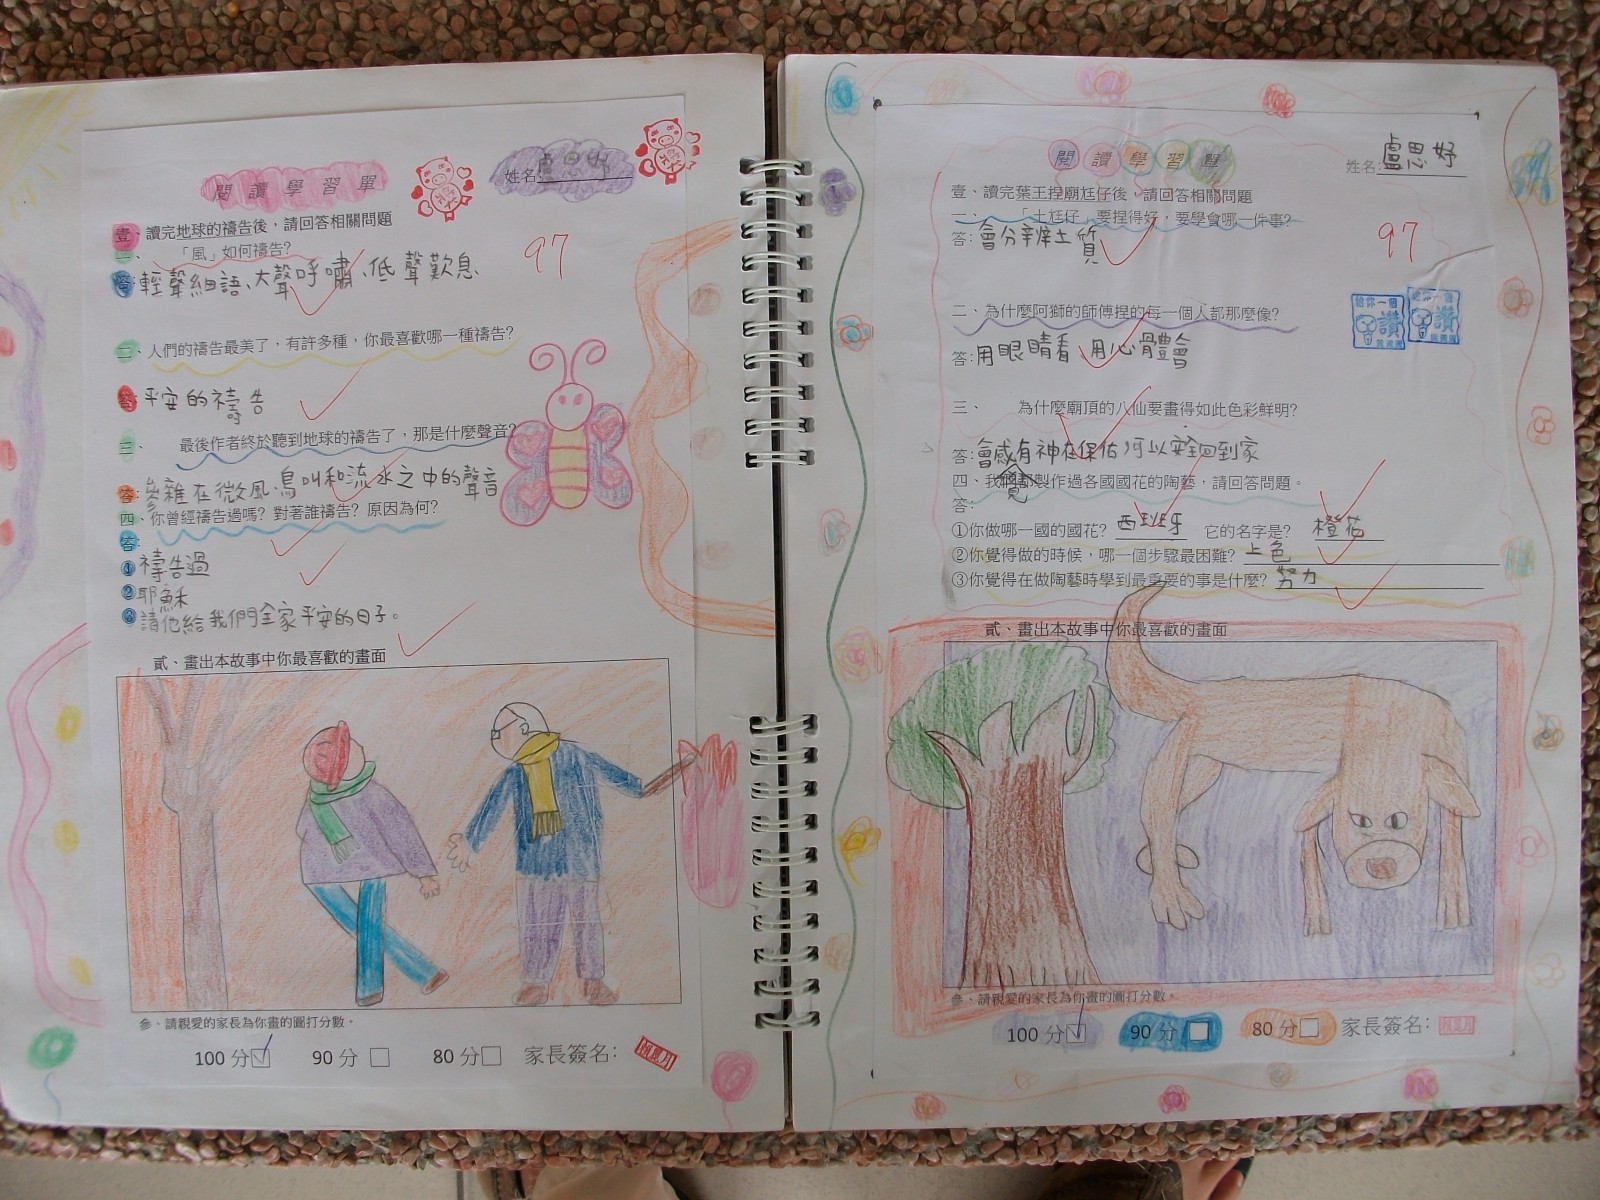 閱讀學習單
姓名:盧思妤
壹、讀完地球的禱告後，請回答相關問題
一、 「風」如何禱告?
答:輕聲細語、大聲呼嘯、低聲歎息
97
二、人們的禱告最美了，有許多種，你最喜歡哪一種禱告?
答:平安的禱告
三、 最後作者終於聽到地球的禱告了，那是什麼聲音?
答:參雜在微風、鳥叫和流水之中的聲音
四、你曾經禱告過嗎? 對著誰禱告? 原因為何?
答:
①禱告過
②耶穌
③請他給我們全家平安的日子。
貳、畫出本故事中你最喜歡的畫面
參、請親愛的家長為你畫的圖打分數。
100 分 90 分 80 分 家長簽名：
閱讀學習單
姓名:盧思妤
壹、讀完葉王捏廟尪仔後，請回答相關問題
一、 「土尪仔」要捏得好，要學會哪一件事?
答:會分辨土質
97
二、為什麼阿獅的師傅捏的每一個人都那麼像?
給你一個讚
給你一個讚
答:用眼睛看、用心體會
三、 為什麼廟頂的八仙要畫得如此色彩鮮明?
答:會感覺有神在保佑,可以安全回到家
四、我們都製作過各國國花的陶藝，請回答問題。
答:
①你做哪一國的國花? 西班牙 它的名字是? 橙花
②你覺得做的時候，哪一個步驟最困難? 上色
③你覺得在做陶藝時學到最重要的事是什麼? 努力
貳、畫出本故事中你最喜歡的畫面
參、請親愛的家長為你畫的圖打分數。
100 分 90 分 80 分 家長簽名：